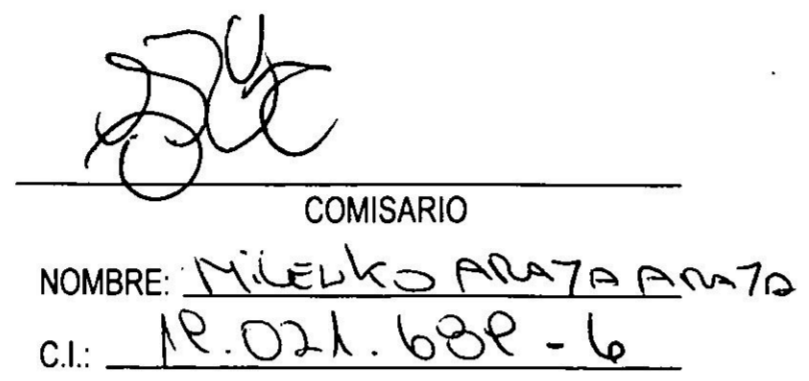 COMISARIO
NOMBRE: MiLENKO ARAYA ARAYA
C.I.: 19.021.689-6